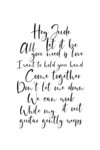 Hey Jude
All let it be
you need is love
I want to hold your hand
Come together
Don't let me down
We can work
While my it out
guitar gently weeps